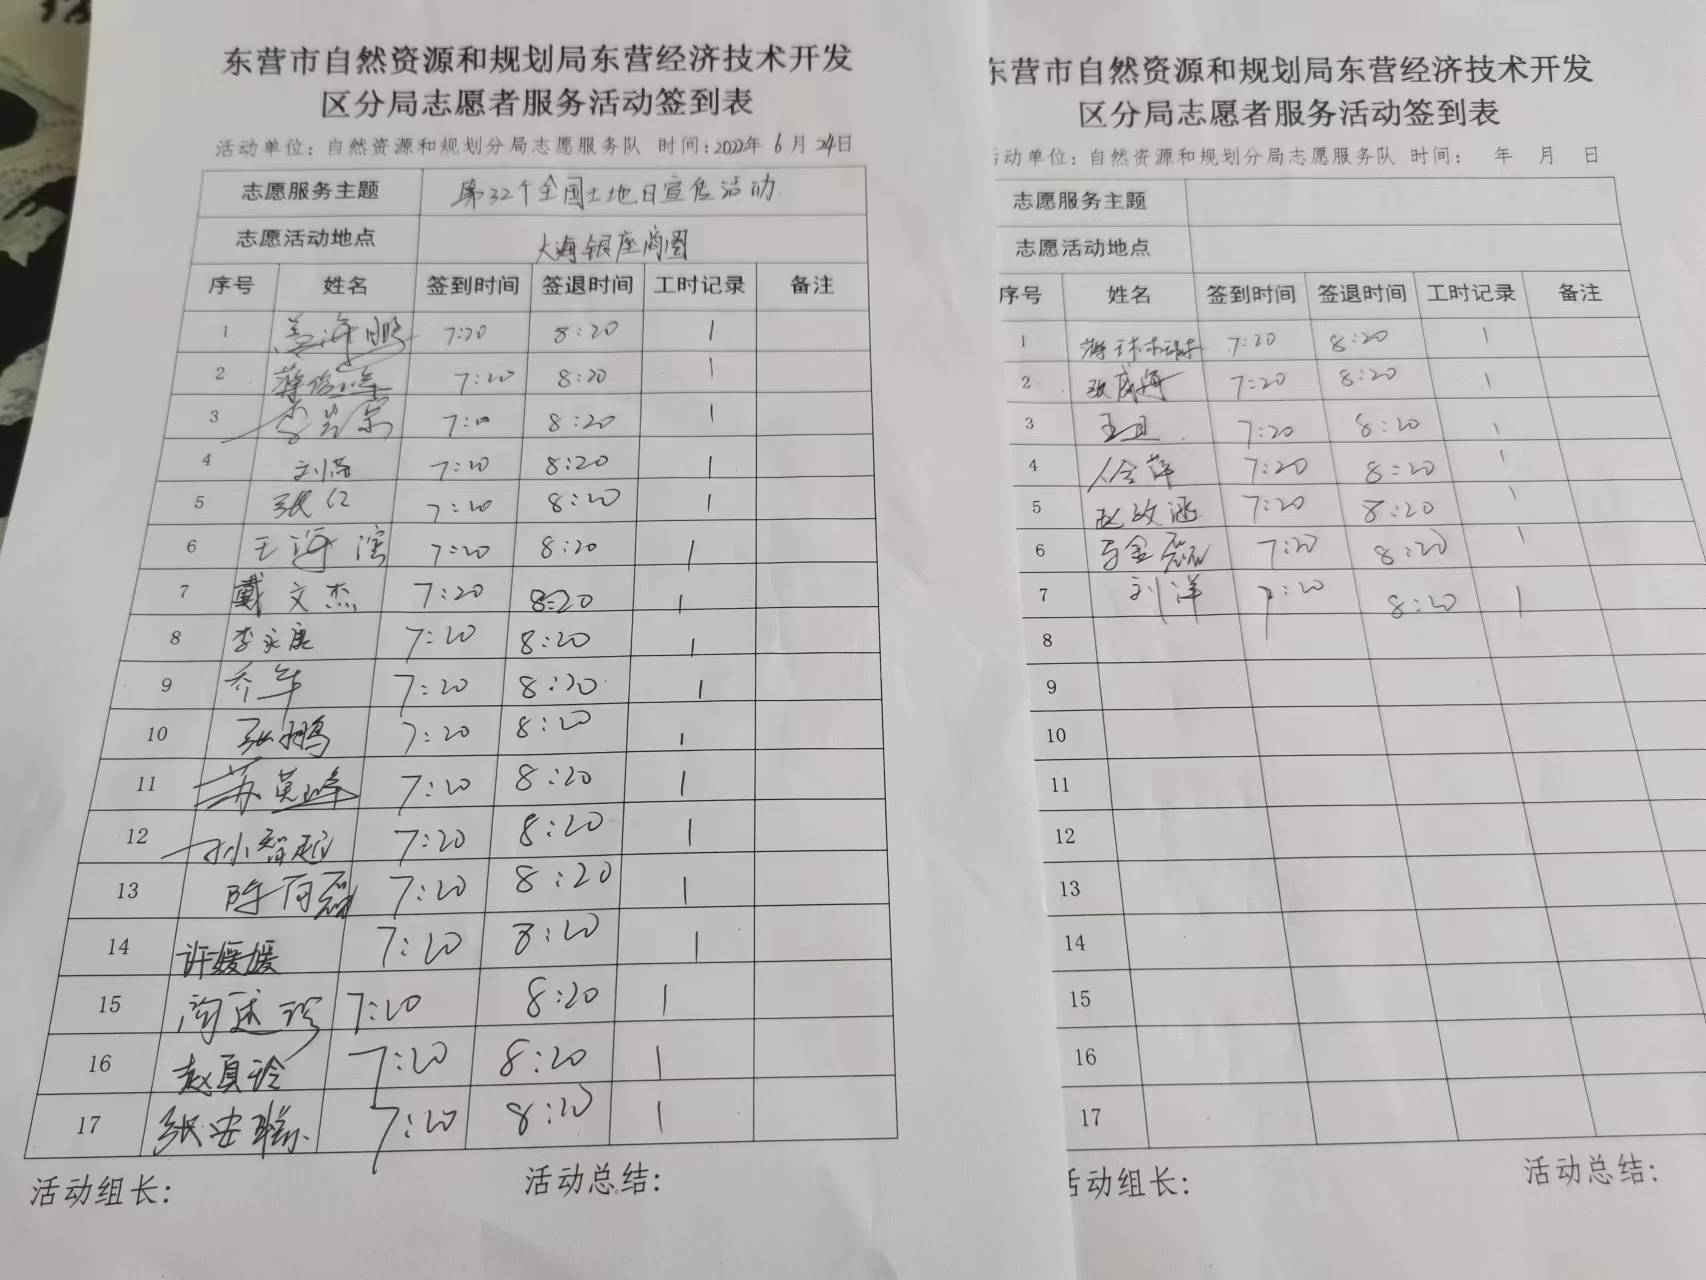 东营市自然资源和规划局东营经济技术开发
区分局志愿者服务活动签到表
活动单位：自然资源和规划分局志愿服务队 时间：2022年 6月 24日
志愿服务主题 第32个全国土地日宣传活动.
志愿活动地点 大海银座商圈
序号 姓名 签到时间 签退时间 工时记录 备注
1 7:20 8:20 1
2 7:20 8:20 1
3 7:20 8:20 1
4 7:20 8:20 1
5 张仁 7:20 8:20 1
6 王海滨 7:20 8:20 1
7 戴文杰 7:20 8:20 1
8 李永康 7:20 8:20 1
9 乔军 7:20 8:20 1
10 张鹏 7:20 8:20 1
11 苏英峰 7:20 8:20 1
12 孙智超 7:20 8:20 1
13 7:20 8:20 1
14 许媛媛 7:20 8:20 1
15 7:20 8:20 1
16 赵夏玲 7:20 8:20 1
17 7:20 8:20 1
活动组长： 活动总结：
东营市自然资源和规划局东营经济技术开发
区分局志愿者服务活动签到表
活动单位：自然资源和规划分局志愿服务队 时间： 年 月 日
志愿服务主题
志愿活动地点
序号 姓名 签到时间 签退时间 工时记录 备注
1 7:20 8:20 1
2 7:20 8:20 1
3 王旦 7:20 8:20 1
4 7:20 8:20 1
5 赵政涵 7:20 8:20 1
6 7:20 8:20 1
7 刘洋 7:20 8:20 1
8
9
10
11
12
13
14
15
16
17
活动组长： 活动总结：